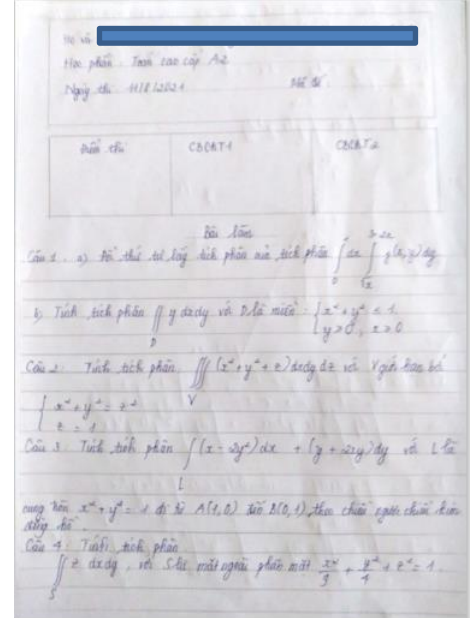 Họ và
Học phần: Toán cao cấp A2
Ngày thi: 11/8/2021 Mã đề:
Điểm thi CBCBT1 CBCBT2
Bài làm
Câu 1: a) Đổi thứ tự lấy tích phân của tích phân ∫₀¹ dx ∫ f(x,y) dy
b) Tính tích phân ∬_D y dxdy với D là miền: { x² + y² ≤ 1
y ≥ 0, x ≥ 0
Câu 2: Tính tích phân ∭_V (x² + y² + z) dxdydz với V giới hạn bởi
{ x² + y² = z²
z = 1
Câu 3: Tính tích phân ∫_L (x - 2y²) dx + (y + 2xy) dy với L là
cung tròn x² + y² = 1 đi từ A(1,0) đến B(0,1) theo chiều ngược chiều kim
đồng hồ.
Câu 4: Tính tích phân
∬_S z dxdy, với S là mặt ngoài phần mặt x²/9 + y²/4 + z² = 1.